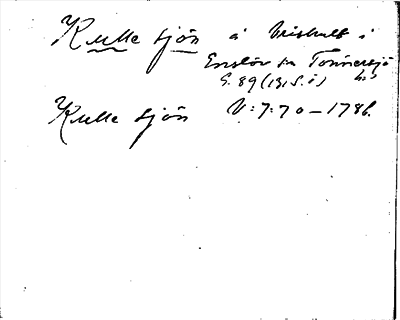 Kulle sjön å Briskult i
Enslöv sn Tönnersjö
G. 89 (1815.i) hd
Kulle sjön V:7:70—1786.